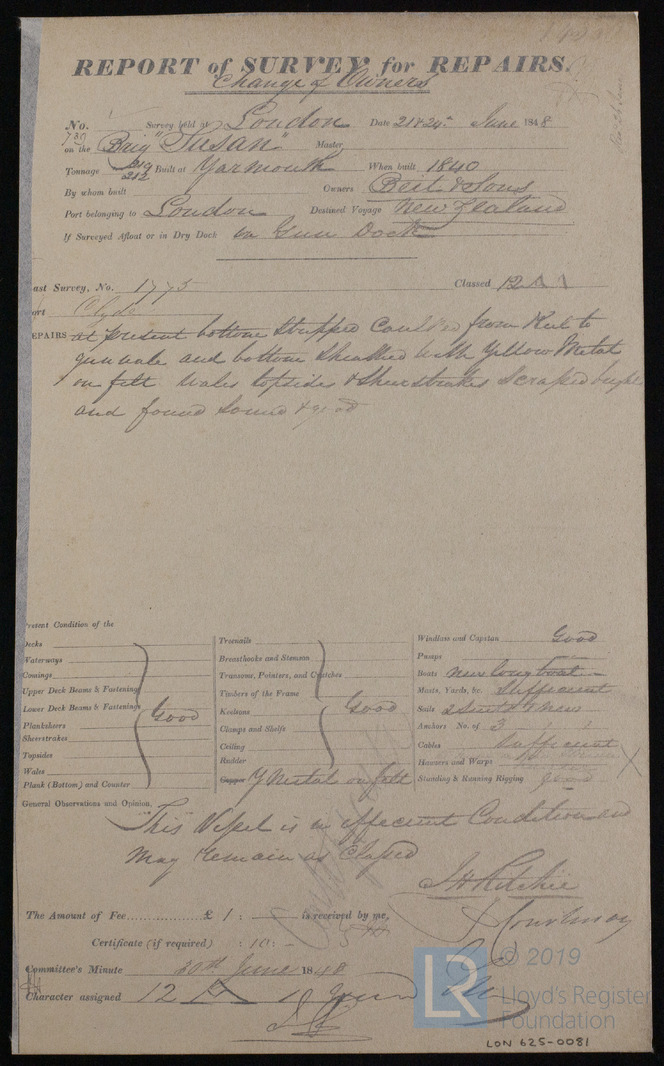 REPORT of SURVEY for REPAIRS.
Change of Owners
No. 730 Survey held at London Date 21 & 24th June 1848
on the Brig "Susan" Master
Tonnage 219 212 Built at Yarmouth When built 1840
By whom built Owners Beit & Sons
Port belonging to London Destined Voyage New Zealand
If Surveyed Afloat or in Dry Dock in Gun Dock
ast Survey, No. 1775 Classed 12 A 1
ort Clyde
EPAIRS at present bottom Stripped Caulked from Keel to
gunwale and bottom Sheathed with Yellow Metal
on felt Wales topsides & Sheerstrakes Scraped bright
and found Sound & good
Present Condition of the
Decks
Waterways
Comings
Upper Deck Beams & Fastening
Lower Deck Beams & Fastenings
Planksheers
Sheerstrakes
Topsides
Wales
Plank (Bottom) and Counter
Good
Treenails
Breasthooks and Stemson
Transoms, Pointers, and Crutches
Timbers of the Frame
Keelsons
Clamps and Shelfs
Ceiling
Rudder
Good
Copper Y Metal on felt
Windlass and Capstan Good
Pumps
Boats new long boat
Masts, Yards, &c. Sufficient
Sails 2 Suits
Anchors No. of 3
Cables Sufficient
Hawsers and Warps
Standing & Running Rigging good
General Observations and Opinion,
This Vessel is in effecient Condition and
may remain as Classed
J H Ritchie
J Courtenay
The Amount of Fee £ 1 : is received by me,
Certificate (if required) : 10 : -
Committee's Minute 30th June 1848
Character assigned 12 A 1
LR
© 2019
Lloyd's Register
Foundation
LON 625-0081